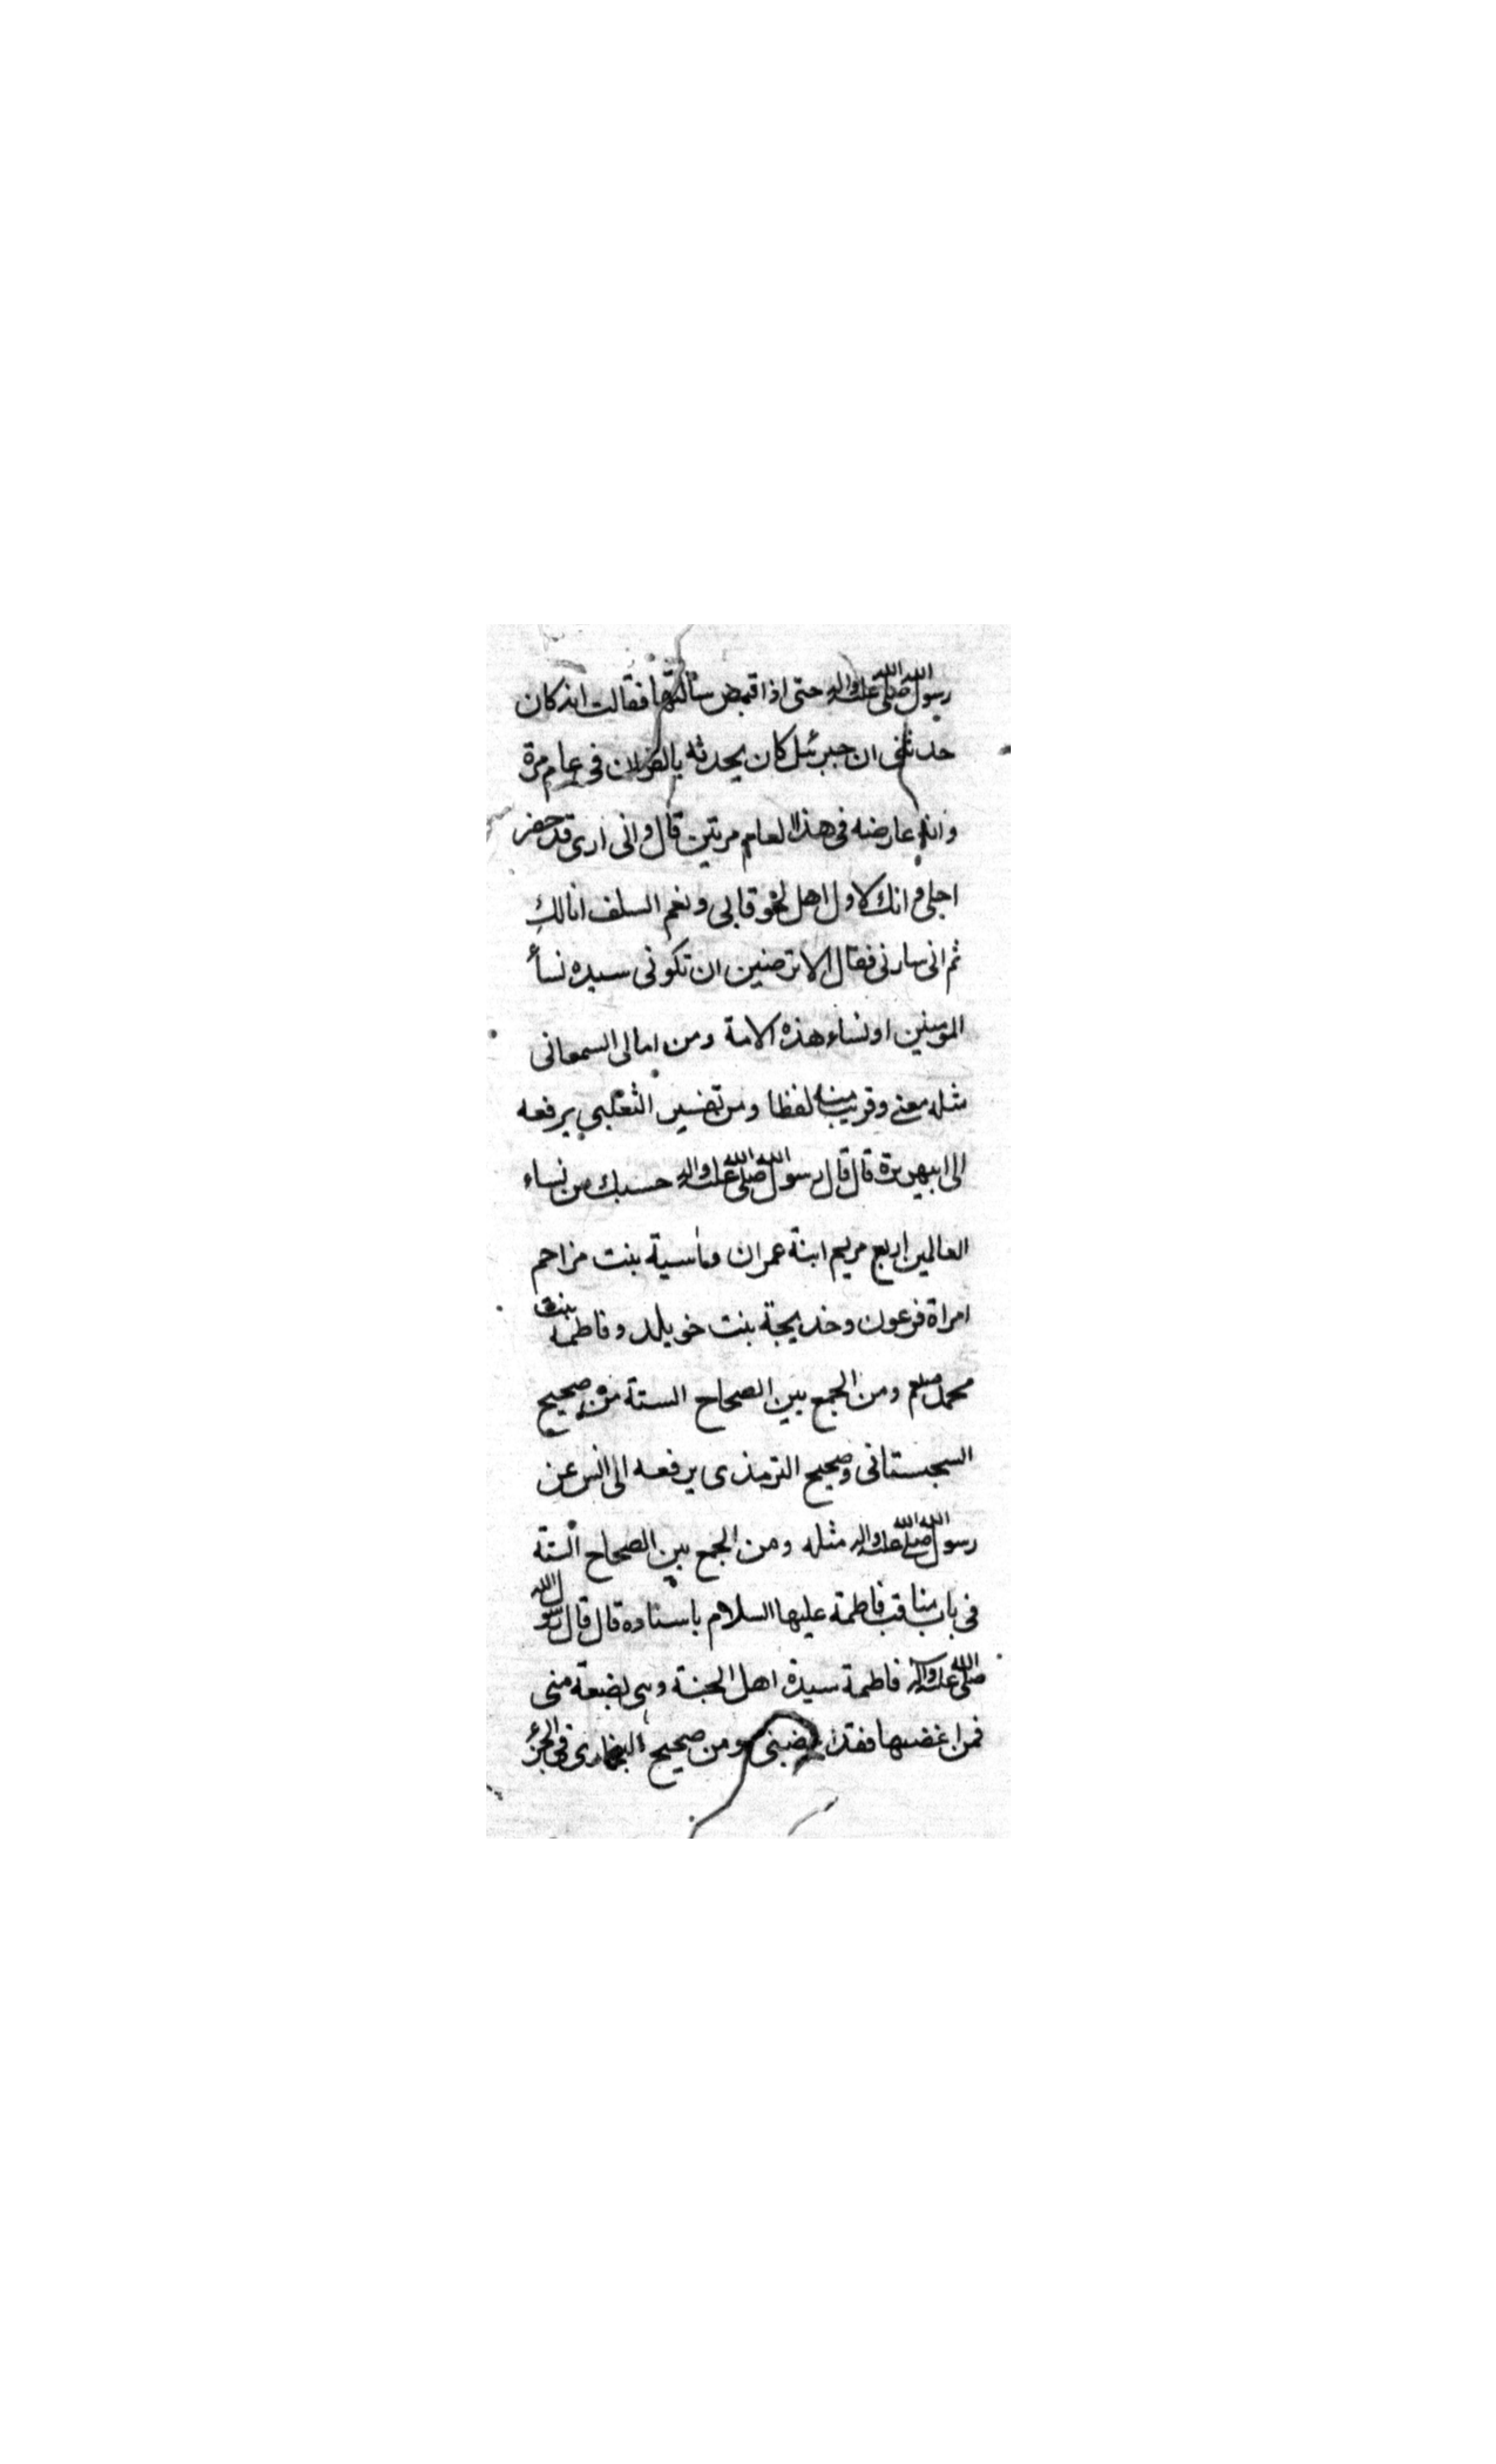 رسول الله صلى الله عليه واله حتى اذا قبض سألتها فقالت انه كان
حدثنى ان جبرئيل كان يحدثه بالقران فى عام مرة
وانه عارضه فى هذا العام مرتين قال وانى ارى قد حضر
اجلى وانك لاول اهل لحوقا بى ونعم السلف انا لك
ثم انى سارنى فقال الا ترضين ان تكونى سيده نسأ
المومنين او نساء هذه الامة ومن امالى السمعانى
مثله معنى وقريب منه لفظا ومن تفسير الثعلبى يرفعه
الى ابيهريرة قال قال رسول الله صلى الله عليه واله حسبك من نساء
العالمين اربع مريم ابنة عمران واسية بنت مزاحم
امراة فرعون وخديجة بنت خويلد وفاطمة بنت
محمد صلعم ومن الجمع بين الصحاح الستة من صحيح
السجستانى وصحيح الترمذى يرفعه الى انس عن
رسول الله صلى الله عليه واله مثله ومن الجمع بين الصحاح الستة
فى باب مناقب فاطمة عليها السلام باسناده قال قال رسول الله
صلى الله عليه واله فاطمة سيدة اهل الجنة وهى بضعة منى
فمن اغضبها فقد اغضبنى ومن صحيح البخارى فى الجزء